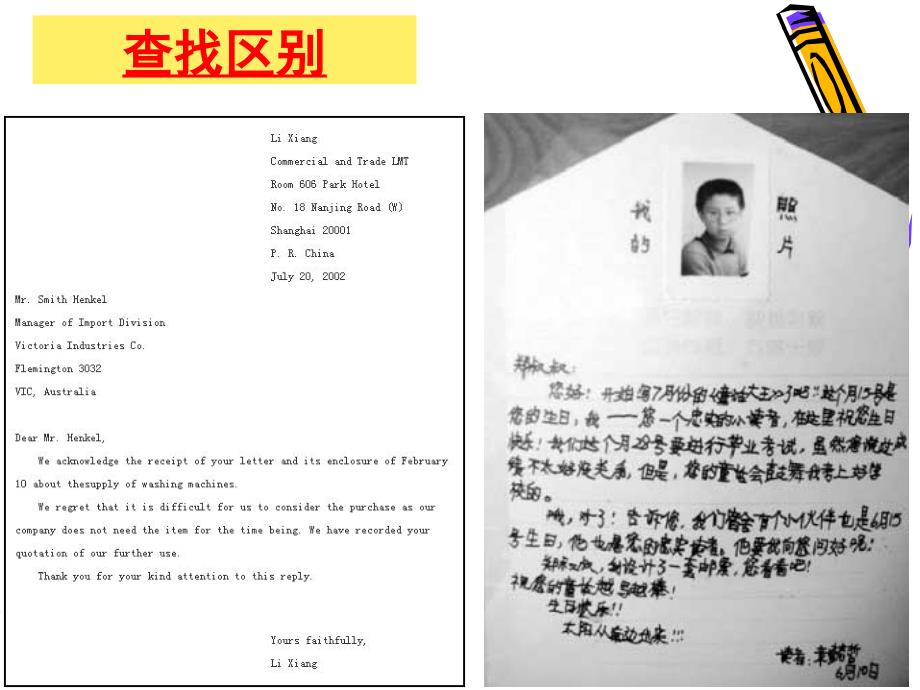 查找区别
Li Xiang
Commercial and Trade LMT
Room 606 Park Hotel
No. 18 Nanjing Road (W)
Shanghai 20001
P. R. China
July 20, 2002
Mr. Smith Henkel
Manager of Import Division
Victoria Industries Co.
Flemington 3032
VIC, Australia
Dear Mr. Henkel,
We acknowledge the receipt of your letter and its enclosure of February
10 about thesupply of washing machines.
We regret that it is difficult for us to consider the purchase as our
company does not need the item for the time being. We have recorded your
quotation of our further use.
Thank you for your kind attention to this reply.
Yours faithfully,
Li Xiang
我的 照片
郑叔叔：
您好！开始写7月份的《童话大王》了吧？这个月15号是
您的生日，我——您一个忠实的小读者，在这里祝您生日
快乐！我们这个月28号要进行毕业考试，虽然
不太好没关系，但是，您的童话会鼓舞我考上好学
校的。
哦，对了！告诉您，我们 有个小伙伴也是6月15
号生日，他也是您的忠实读者。他要我向您问好呢！
郑叔叔，我设计了一套邮票，您看看吧！
祝您的童话越写越棒！
生日快乐！！
太阳从 边出来！！！
读者：
6月10日